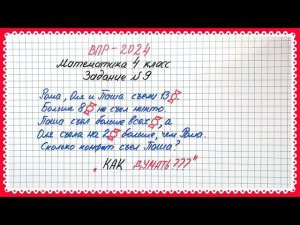 ВПР-2024
Математика 4 класс
Задание №9
Рома, Оля и Паша съели 13
Больше 8 не съел никто.
Паша съел больше всех, а
Оля съела на 2 больше, чем Рома.
Сколько конфет съел Паша?
"КАК ДУМАТЬ???"